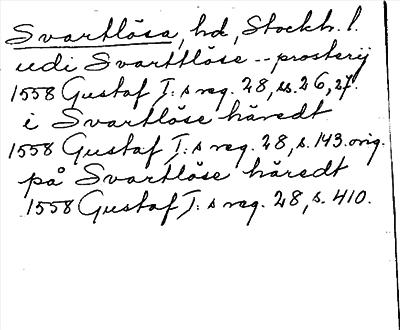 Svartlösa, hd, Stockh. l.
udi Svarttlöse -- prosterij
1558 Gustaf I:s reg. 28, ss. 26, 27.
i Svartlöse häredt
1558 Gustaf I:s reg. 28, s. 143. orig.
på Svartlöse häredt
1558 Gustaf I:s reg. 28, s. 410.